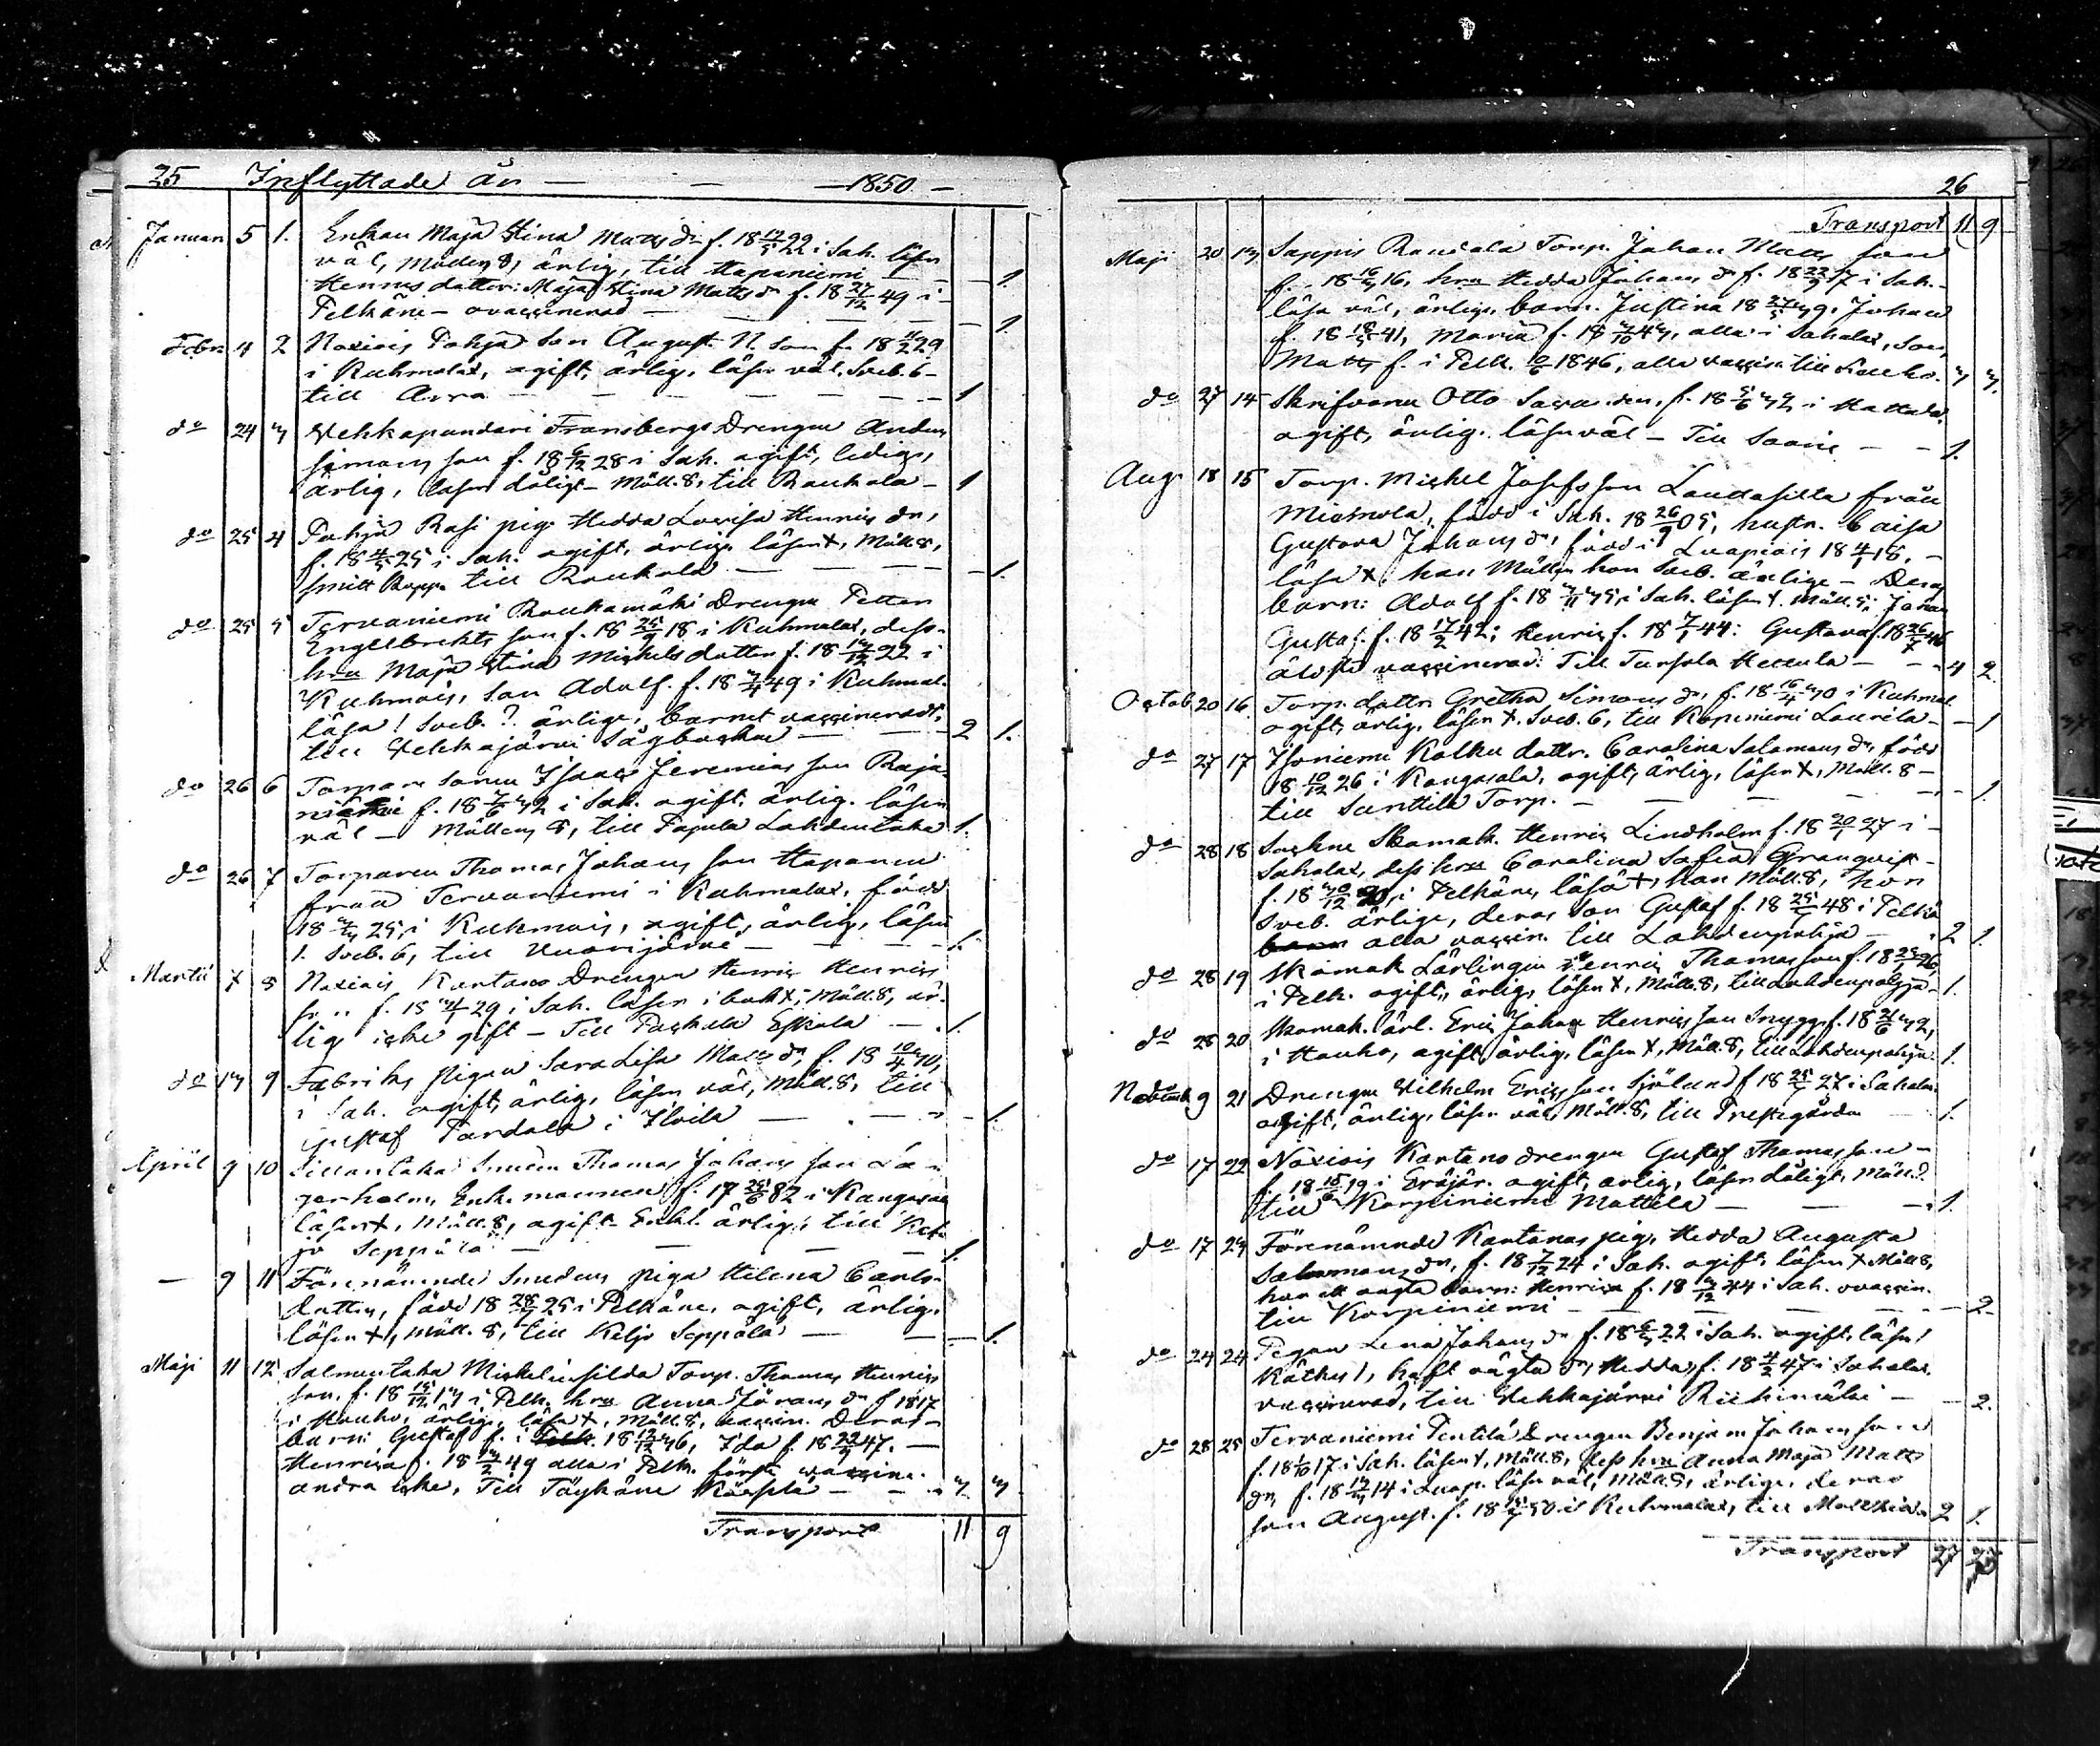 25 Inflyttade år — — 1850 —
Januari 5 1. Enkan Maja Stina Matts dr f. 18 17/5 22 i Sah. läser
väl, Mölleng 8, ärlig, till Haponiemi — 1.
Hennes dotter: Maja Stina Matts dr f. 18 27/12 49 i
Pelkäne — ovaccinerad — — — 1.
Febr. 4 2 Pohja Son August N. son f. 18 11/2 29
i Kuhmalax, ogift, ärlig, läser väl. Sveb. 6 —
till — — — — — 1
do 24 3 Vehkapundari Fransbergs Drengen Anders
Simons son f. 18 6/12 28 i Sah. ogift, ledig,
ärlig, läser dåligt — Möll. 8, till Raukola — 1
do 25 4 Pohja Rasi pig. Hedda Lovisa Henrics dr,
f. 18 4/5 25 i Sah. ogift, ärlig, läser +, Möll 8,
till Raukola — — — 1.
do 25 5 Tervaniemi Raukamäki Drengen Petter
Engelbrekts son f. 18 25/9 18 i Kuhmalax, dess
hru Maja Stina Michels dotter f. 18 13/12 22 i
Kuhmois, son Adolf. f. 18 3/4 49 i Kuhmal.
läsa ! Sveb. ?. ärlige, barnet vaccineradt,
till Vehkajärvi Sågbacka — — 2 1.
do 26 6 Torpare sonen Isaac Jeremias son Raja-
f. 18 7/6 32 i Sah. ogift, ärlig. läser
väl — Mölleng 8, till Pajula Lahdentaka 1.
do 26 7 Torparen Thomas Johans son Haponen
från Tervaniemi i Kuhmalax, född
18 25, i Kuhmois, ogift, ärlig, läser
1. Sveb. 6, till Vuorijärvi — — — 1.
Martii 7 8 Kantano Drengen Henric Henrics
s. .. f. 18 29 i Sah. läser i bok +, Möll. 8, är-
lig icke gift — Till Eskola — 1.
do 13 9 Fabriks pigan Sara Lisa Matts dr f. 18 10/4 30,
i Sah. ogift, ärlig, läser väl, Möll. 8, till
Gustaf i — — 1.
April 9 10 Sillantaka Smeden Thomas Johans son La-
gerholm, Enkemannen f. 17 25/6 82 i Kangasala
läser +, Möll. 8, ogift Enkl. ärlig, till Kel-
jo Seppälä — — — 1.
— 9 11 Förenämnde Smedens piga Helena Carls-
dotter, född 18 28/7 25 i Pelkäne, ogift, ärlig,
läser +, Möll. 8, till Keljo Seppälä — — 1.
Maji 11 12 Salmentaka Torp. Thomas Henrics
son. f. 18 15/12 13 i Pelk. hru Anna Jörans dr f 1817
i Hauho, ärlige, läsa +, Möll. 8, vaccin. Deras
barn: Gustaf f. i Pelk. 18 12/12 36, Ida f. 18 22/9 47.
Henrica f. 18 13/2 49 alla i Pelk. först vaccin.
andra icke, Till — 3 3
Transport 11 9
26
Transport 11 9
Maji 20 13 Sappis Raudala Torp. Johan Matts son
f. 18 16/3 16, hru Hedda Johans dr f. 18 22/9 17 i Sah.
läsa väl, ärlige, barn. Justina 18 27/5 39, Johan
f. 18 18/5 41, Maria f. 18 3/10 43, alla i Sahalax, Son
Matts f. i Pelk. 1846, alla vaccin. till 3 3.
do 27 14 Skrifvaren Otto f. 18 5/6 32 i Hattula
ogift, ärlig. läser väl — Till — — 1.
Aug. 18 15 Torp. Michel Josefs son från
född i Sah. 18 26/9 05, hustr. Caisa
Gustava Johans dr, född i Luopiois 18 4/1 18. —
läsa + han Möllen hon Sveb. ärlige — Deras
barn: Adolf f. 18 3/11 35, i Sah. läser +. Möll. 5; Johan
Gustaf. f. 18 17/2 42; Henric f. 18 7/1 44: Gustava f. 18 26/7 46
äldste vaccinerad: Till — — 4 2.
Octob. 20 16 Torp. dottr. Gretha Simons dr, f. 18 16/4 30 i Kuhmal.
ogift, ärlig, läser +. Sveb. 6, till Laurila — 1
do 27 17 Isoniemi Kolku dottr. Carolina Salomons dr, född
18 10/12 26 i Kangasala, ogift, ärlig, läser +, Möll. 8 —
till Santtila Torp. — — — 1.
do 28 18 Sockne Skomak. Henric Lindholm f. 18 20/1 27 i
Sahalax, dess hru Carolina Sofia Granqvist
f. 18 30/12 20, i Pelkäne, läsa +, han Möll. 8, hon
Sveb. ärlige, deras Son Gustaf f. 18 25/5 48 i Pelkä
alla vaccin. till Lahdenpohja — 2 1.
do 28 19 Skomak Lärlingen Henric Thomas son f. 18 26,
i Pelk. ogift, ärlig, läser +, Möll. 8, till Lahdenpohja 1.
do 28 20 Skomak. lärl. Eric Johan Henrics son Snygg f. 18 21/6 32,
i Hauho, ogift, ärlig, läser +, Möll. 8, till Lahdenpohja. 1.
Novemb 9 21 Drengen Vilhelm Erics son Sjölund f 18 25/5 27 i Sahalax
ogift, ärlig, läser väl, Möll. 8, till Prestegården — 1.
do 17 22 Kantano drengen Gustaf Thomas son —
f. 18 18/6 19 i Eräjär. ogift, ärlig, läser dåligt, Möll. ?.
till Korpiniemi Mattila — — 1.
do 17 23 Förenämnde Kantanos pig. Hedda Augusta
Salomons dr, f. 18 7/12 24 i Sah. ogift, läser + Möll 8,
har ett oägta barn: Henrica f. 18 /12 44 i Sah. ovaccin.
till Korpiniemi — — — — 2.
do 24 24 Pigan Lena Johans dr f. 18 6/3 22 i Sah. ogift, läser !
haft oägta dr, Hedda, f. 18 4/2 47 i Sahalax.
vaccinerad, till Vehkajärvi Riihimäki — — 2.
do 28 25 Tervaniemi Penttilä drengen Benjam Johans son
f. 18 1/10 17 i Sah. läser +, Möll. 8, dess hru Anna Maja Matts
dr, f. 18 14 i Luop. läser väl, Möll. 8, ärlige, deras
son August. f. 18 50 i Kuhmalax, till 2 1.
Transport 27 23